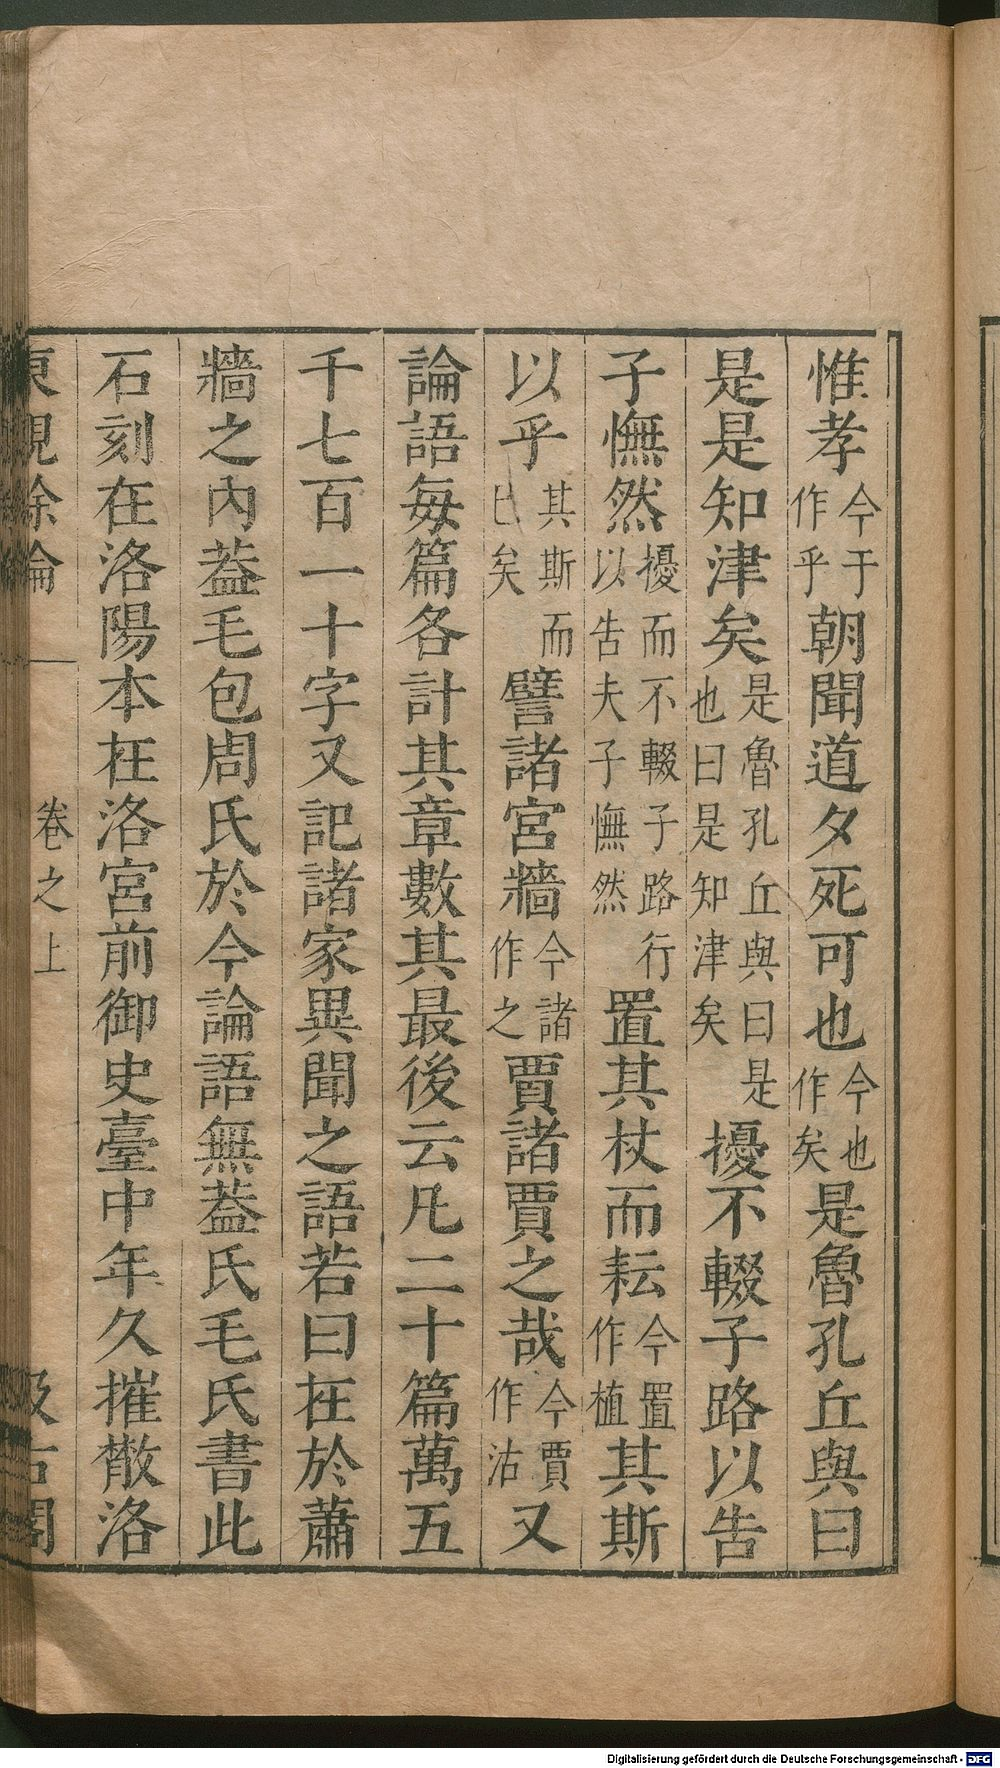 惟孝今于作乎朝聞道夕死可也今也作矣是魯孔丘與曰
是是知津矣是魯孔丘與曰是也曰是知津矣擾不輟子路以告
子憮然擾而不輟子路行以告夫子憮然置其杖而耘今置作植其斯
以乎其斯而已矣譬諸宮牆今諸作之賈諸賈之哉今賈作沽又
論語每篇各計其章數其最後云凡二十篇萬五
千七百一十字又記諸家異聞之語若曰在於蕭
牆之內葢毛包周氏於今論語無葢氏毛氏書此
石刻在洛陽本在洛宮前御史臺中年久摧散洛
東觀餘論 卷之上 汲古閣
Digitalisierung gefördert durch die Deutsche Forschungsgemeinschaft - DFG